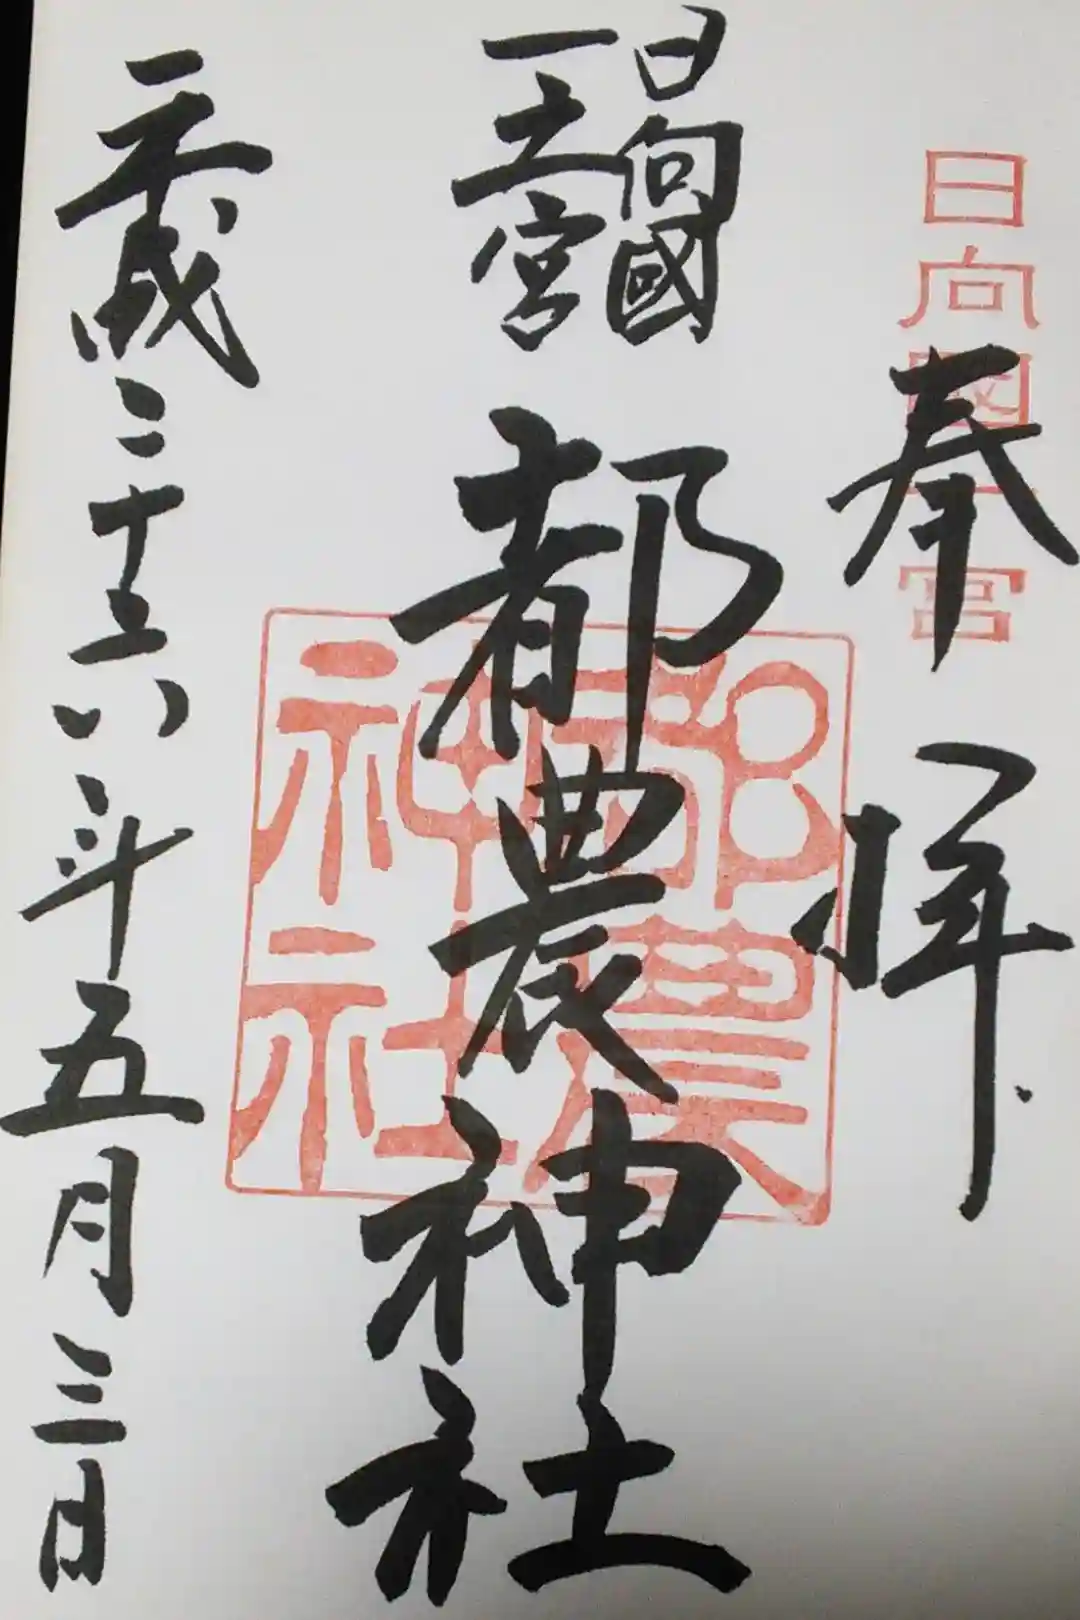 日向國一宮
奉拝
日向國
一之宮
都農神社
都農
神社
平成二十六年五月三日